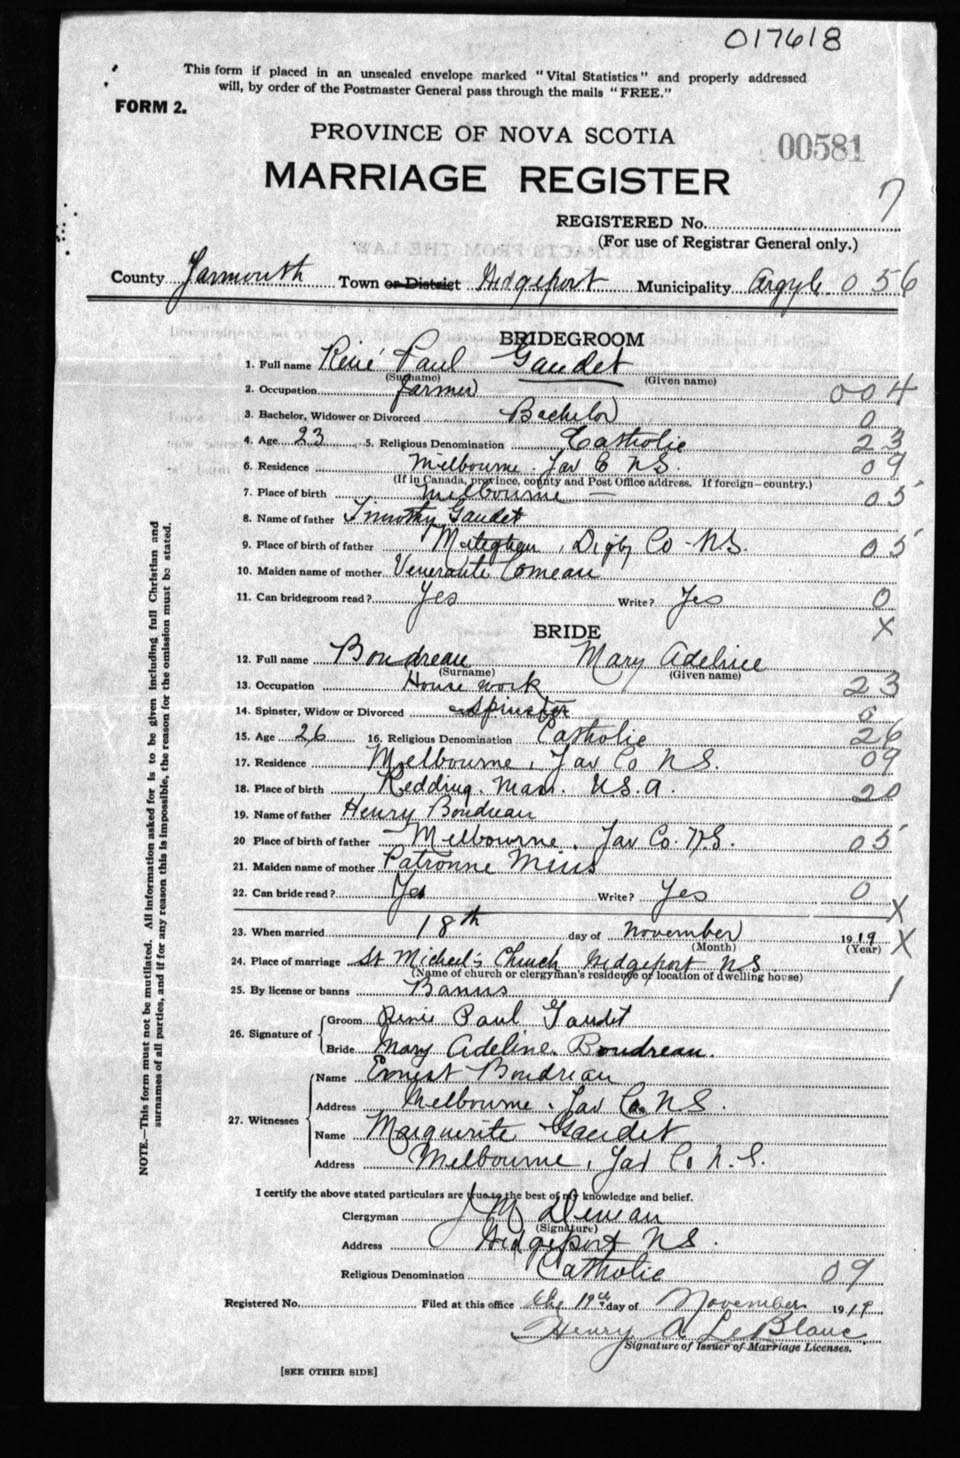 017618
This form if placed in an unsealed envelope marked "Vital Statistics" and properly addressed
will, by order of the Postmaster General pass through the mails "FREE."
FORM 2.
PROVINCE OF NOVA SCOTIA
00581
MARRIAGE REGISTER
7
REGISTERED No.
(For use of Registrar General only.)
County Yarmouth Town or District Wedgeport Municipality Argyle 056
BRIDEGROOM
1. Full name René Paul Gaudet
(Surname) (Given name)
2. Occupation Farmer 004
3. Bachelor, Widower or Divorced Bachelor 0
4. Age 23 5. Religious Denomination Catholic 23
6. Residence Melbourne. Yar Co NS. 09
(If in Canada, province, county and Post Office address. If foreign—country.)
7. Place of birth Melbourne — 05
8. Name of father Timothy Gaudet
9. Place of birth of father Meteghan, Digby Co. NS. 05
10. Maiden name of mother Comeau
11. Can bridegroom read? Yes Write? Yes 0
X
BRIDE
12. Full name Boudreau Mary Adeline
(Surname) (Given name)
13. Occupation House work 23
14. Spinster, Widow or Divorced Spinster
15. Age 26 16. Religious Denomination Catholic 26
17. Residence Melbourne, Yar Co NS. 09
18. Place of birth Redding. Mass. U.S.A. 20
19. Name of father Henry Boudreau
20 Place of birth of father Melbourne. Yar Co. N.S. 05
21. Maiden name of mother Patronne Mius
22. Can bride read? Yes Write? Yes 0
X
23. When married 18th day of November 1919 X
(Month) (Year)
24. Place of marriage St Micheel's Church Wedgeport NS
(Name of church or clergyman's residence or location of dwelling house)
25. By license or banns Banns 1
26. Signature of Groom René Paul Gaudet
Bride Mary Adeline Boudreau.
27. Witnesses Name Ernest Boudreau
Address Melbourne. Yar Co. NS.
Name Marguerite Gaudet
Address Melbourne, Yar Co N.S.
I certify the above stated particulars are true to the best of my knowledge and belief.
Clergyman J M
(Signature)
Address Wedgeport NS.
Religious Denomination Catholic 09
Registered No. Filed at this office the 19th day of November 1919
Henry A LeBlanc
Signature of Issuer of Marriage Licenses.
[SEE OTHER SIDE]
NOTE.—This form must not be mutilated. All information asked for is to be given including full Christian and
surnames of all parties, and if for any reason this is impossible, the reason for the omission must be stated.